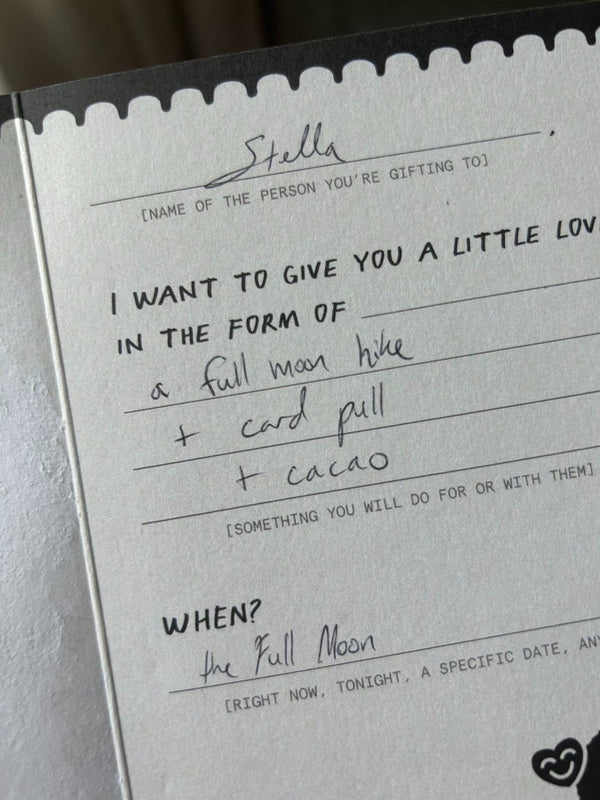 Stella
[NAME OF THE PERSON YOU'RE GIFTING TO]
I WANT TO GIVE YOU A LITTLE
IN THE FORM OF
a full moon hike
+ card pull
+ cacao
[SOMETHING YOU WILL DO FOR OR WITH THEM]
WHEN?
the Full Moon
[RIGHT NOW, TONIGHT, A SPECIFIC DATE,